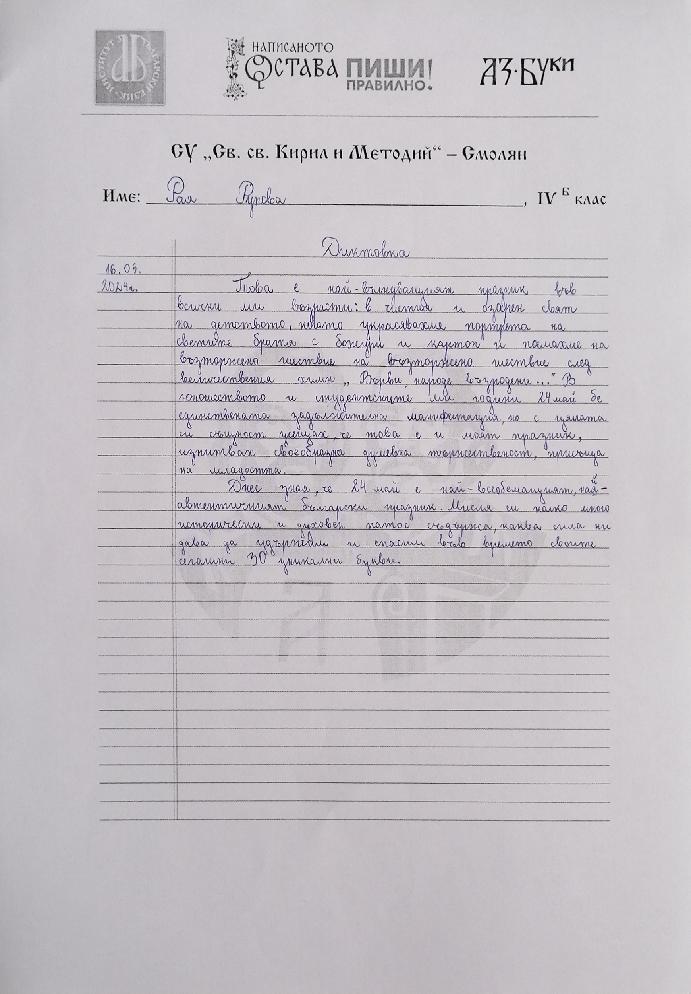 ИНСТИТУТ ЗА БЪЛГАРСКИ ЕЗИК
НАПИСАНОТО
ОСТАВА ПИШИ
ПРАВИЛНО!
АЗ·БУКИ
СУ „Св. св. Кирил и Методий“ – Смолян
Име: Рая, IV Б клас
Диктовка
16.05.
2024г. Това е най-вълнуващият празник във
всички ми възрасти: в чистия и озарен свят
на детството, когато украсявахме портрета на
светите братя с божури и картон и
възторжено шествие на възторжено шествие след
величествения химн „Върви, народе възродени...“ В
юношеството и студентските ми години 24 май бе
единствената задължителна манифитация, но с цялата
си същност усещах, че това е и моят празник,
изпитвах своеобразна душевна тържественост,
на младостта.
Днес зная, че 24 май е най-всеобемащият, най-
автентичният български празник. Мисля си колко много
исторически и духовен патос съдържа, каква сила ни
дава да удържам и спасим във времето своите
сегашни 30 уникални букви.